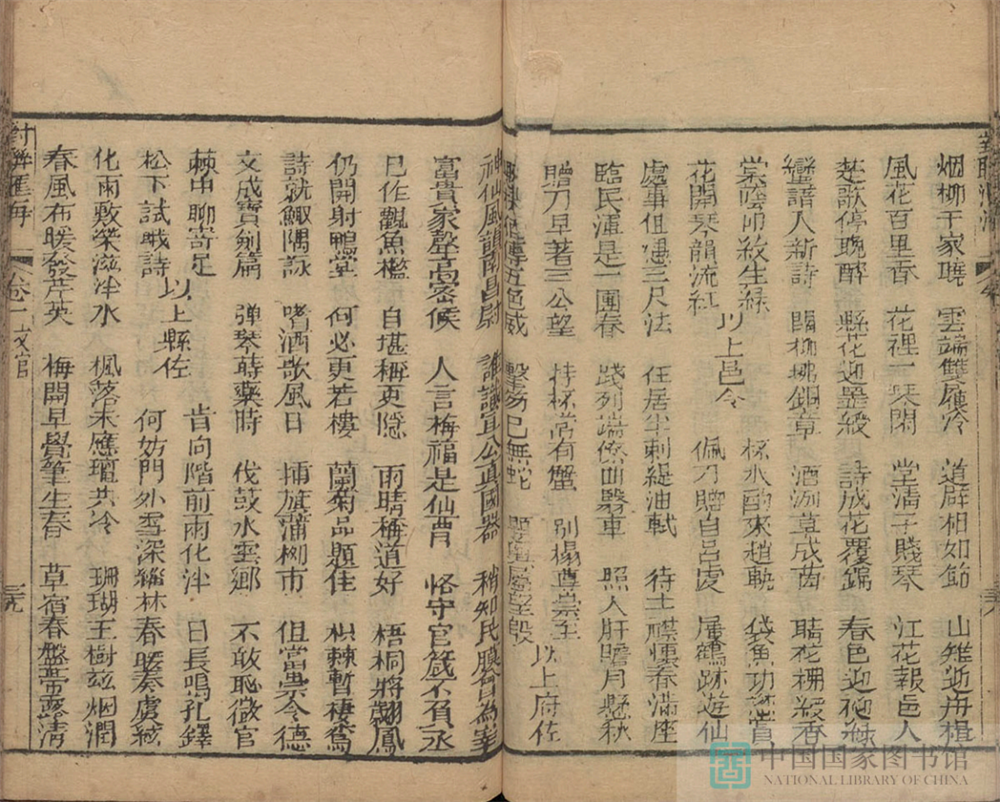 烟柳千家曉 雲端雙履冷 道辟相如節 山雉逝舟楫
風花百里香 花裡一琴閑 堂清子賤琴 江花報邑人
楚歌停晚醉 縣花迎墨綬 詩成花覆錦 春色迎袍綠
人新詩 柳拂銅章 酒冽草成茵 晴花柵綬香
棠陰印綬生綠 杯水酌來趙軌
花開琴韻流紅 佩刀贈自呂虔 鳧鶴跡遊仙
以上邑令
處事但憑三尺法 任居半刺緹油軾 待士襟懷春滿座
臨民渾是一團春 踐列端僚曲翳車 照人肝膽月懸秋
贈刀早著三公望 持杯常有蟹 別榻尊崇至
已無蛇
以上府佐
神仙風韻南昌尉 誰識宜公真國器 稍知民隱日為宰
富貴家聲高密侯 人言梅福是仙曹 恪守官箴不負丞
已作觀魚檻 自堪稱吏隱 雨晴梅道好 梧桐將翽鳳
仍開射鴨堂 何必更若樓 蘭菊品題佳 枳棘暫棲鸞
詩就鯫隅詠 嗜酒歌風日 插旗蒲柳市 但當崇令德
文成寶劍篇 弹琴蒔藥時 伐鼓水雲鄉 不敢恥微官
棘中聊寄足 肯向階前雨化泮 日長鳴孔鐸
松下試哦詩 何妨門外雪深 林春暖奏虞絃
以上縣佐
化雨敷榮滋泮水 楓落未應壇共冷 珊瑚玉樹玆烟潤
春風布暖發芹英 梅開早覺筆生春 草宿春盤苜露清
對聯匯海
卷一 文官
三九
中国国家图书馆
NATIONAL LIBRARY OF CHINA